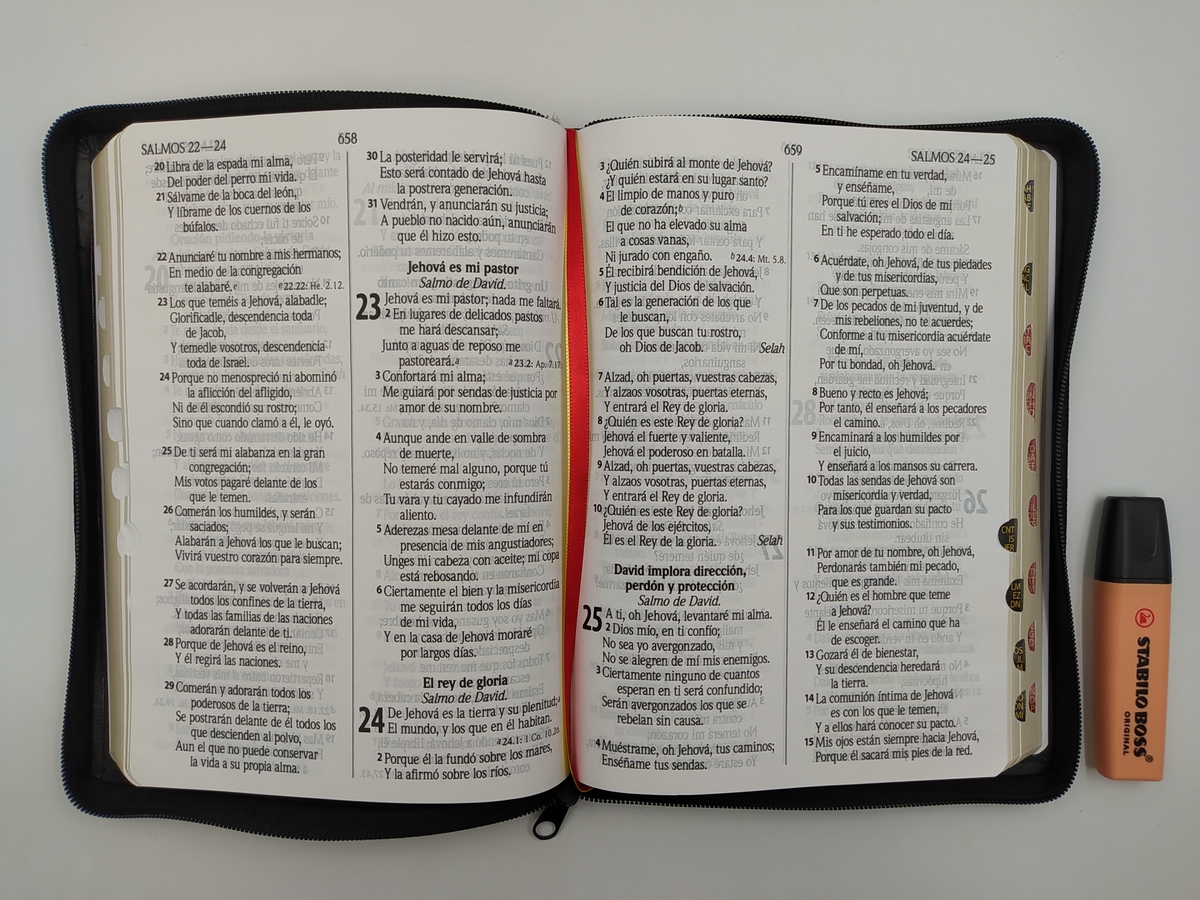 SALMOS 22—24
658
20 Libra de la espada mi alma,
Del poder del perro mi vida.
21 Sálvame de la boca del león,
Y líbrame de los cuernos de los
búfalos.
22 Anunciaré tu nombre a mis hermanos;
En medio de la congregación
te alabaré.e e 22.22: He. 2.12.
23 Los que teméis a Jehová, alabadle;
Glorificadle, descendencia toda
de Jacob,
Y temedle vosotros, descendencia
toda de Israel.
24 Porque no menospreció ni abominó
la aflicción del afligido,
Ni de él escondió su rostro;
Sino que cuando clamó a él, le oyó.
25 De ti será mi alabanza en la gran
congregación;
Mis votos pagaré delante de los
que le temen.
26 Comerán los humildes, y serán
saciados;
Alabarán a Jehová los que le buscan;
Vivirá vuestro corazón para siempre.
27 Se acordarán, y se volverán a Jehová
todos los confines de la tierra,
Y todas las familias de las naciones
adorarán delante de ti.
28 Porque de Jehová es el reino,
Y él regirá las naciones.
29 Comerán y adorarán todos los
poderosos de la tierra;
Se postrarán delante de él todos los
que descienden al polvo,
Aun el que no puede conservar
la vida a su propia alma.
30 La posteridad le servirá;
Esto será contado de Jehová hasta
la postrera generación.
31 Vendrán, y anunciarán su justicia;
A pueblo no nacido aún, anunciarán
que él hizo esto.
Jehová es mi pastor
Salmo de David.
23 Jehová es mi pastor; nada me faltará.
2 En lugares de delicados pastos
me hará descansar;
Junto a aguas de reposo me
pastoreará.a a 23.2: Ap. 7.17.
3 Confortará mi alma;
Me guiará por sendas de justicia por
amor de su nombre.
4 Aunque ande en valle de sombra
de muerte,
No temeré mal alguno, porque tú
estarás conmigo;
Tu vara y tu cayado me infundirán
aliento.
5 Aderezas mesa delante de mí en
presencia de mis angustiadores;
Unges mi cabeza con aceite; mi copa
está rebosando.
6 Ciertamente el bien y la misericordia
me seguirán todos los días
de mi vida,
Y en la casa de Jehová moraré
por largos días.
El rey de gloria
Salmo de David.
24 De Jehová es la tierra y su plenitud;a
El mundo, y los que en él habitan.
a 24.1: 1 Co. 10.26.
2 Porque él la fundó sobre los mares,
Y la afirmó sobre los ríos.
659
SALMOS 24—25
3 ¿Quién subirá al monte de Jehová?
¿Y quién estará en su lugar santo?
4 El limpio de manos y puro
de corazón;b
El que no ha elevado su alma
a cosas vanas,
Ni jurado con engaño. b 24.4: Mt. 5.8.
5 Él recibirá bendición de Jehová,
Y justicia del Dios de salvación.
6 Tal es la generación de los que
le buscan,
De los que buscan tu rostro,
oh Dios de Jacob. Selah
7 Alzad, oh puertas, vuestras cabezas,
Y alzaos vosotras, puertas eternas,
Y entrará el Rey de gloria.
8 ¿Quién es este Rey de gloria?
Jehová el fuerte y valiente,
Jehová el poderoso en batalla.
9 Alzad, oh puertas, vuestras cabezas,
Y alzaos vosotras, puertas eternas,
Y entrará el Rey de gloria.
10 ¿Quién es este Rey de gloria?
Jehová de los ejércitos,
Él es el Rey de la gloria. Selah
David implora dirección,
perdón y protección
Salmo de David.
25 A ti, oh Jehová, levantaré mi alma.
2 Dios mío, en ti confío;
No sea yo avergonzado,
No se alegren de mí mis enemigos.
3 Ciertamente ninguno de cuantos
esperan en ti será confundido;
Serán avergonzados los que se
rebelan sin causa.
4 Muéstrame, oh Jehová, tus caminos;
Enséñame tus sendas.
5 Encamíname en tu verdad,
y enséñame,
Porque tú eres el Dios de mi
salvación;
En ti he esperado todo el día.
6 Acuérdate, oh Jehová, de tus piedades
y de tus misericordias,
Que son perpetuas.
7 De los pecados de mi juventud, y de
mis rebeliones, no te acuerdes;
Conforme a tu misericordia acuérdate
de mí,
Por tu bondad, oh Jehová.
8 Bueno y recto es Jehová;
Por tanto, él enseñará a los pecadores
el camino.
9 Encaminará a los humildes por
el juicio,
Y enseñará a los mansos su carrera.
10 Todas las sendas de Jehová son
misericordia y verdad,
Para los que guardan su pacto
y sus testimonios.
11 Por amor de tu nombre, oh Jehová,
Perdonarás también mi pecado,
que es grande.
12 ¿Quién es el hombre que teme
a Jehová?
Él le enseñará el camino que ha
de escoger.
13 Gozará él de bienestar,
Y su descendencia heredará
la tierra.
14 La comunión íntima de Jehová
es con los que le temen,
Y a ellos hará conocer su pacto.
15 Mis ojos están siempre hacia Jehová,
Porque él sacará mis pies de la red.
STABILO BOSS®
ORIGINAL